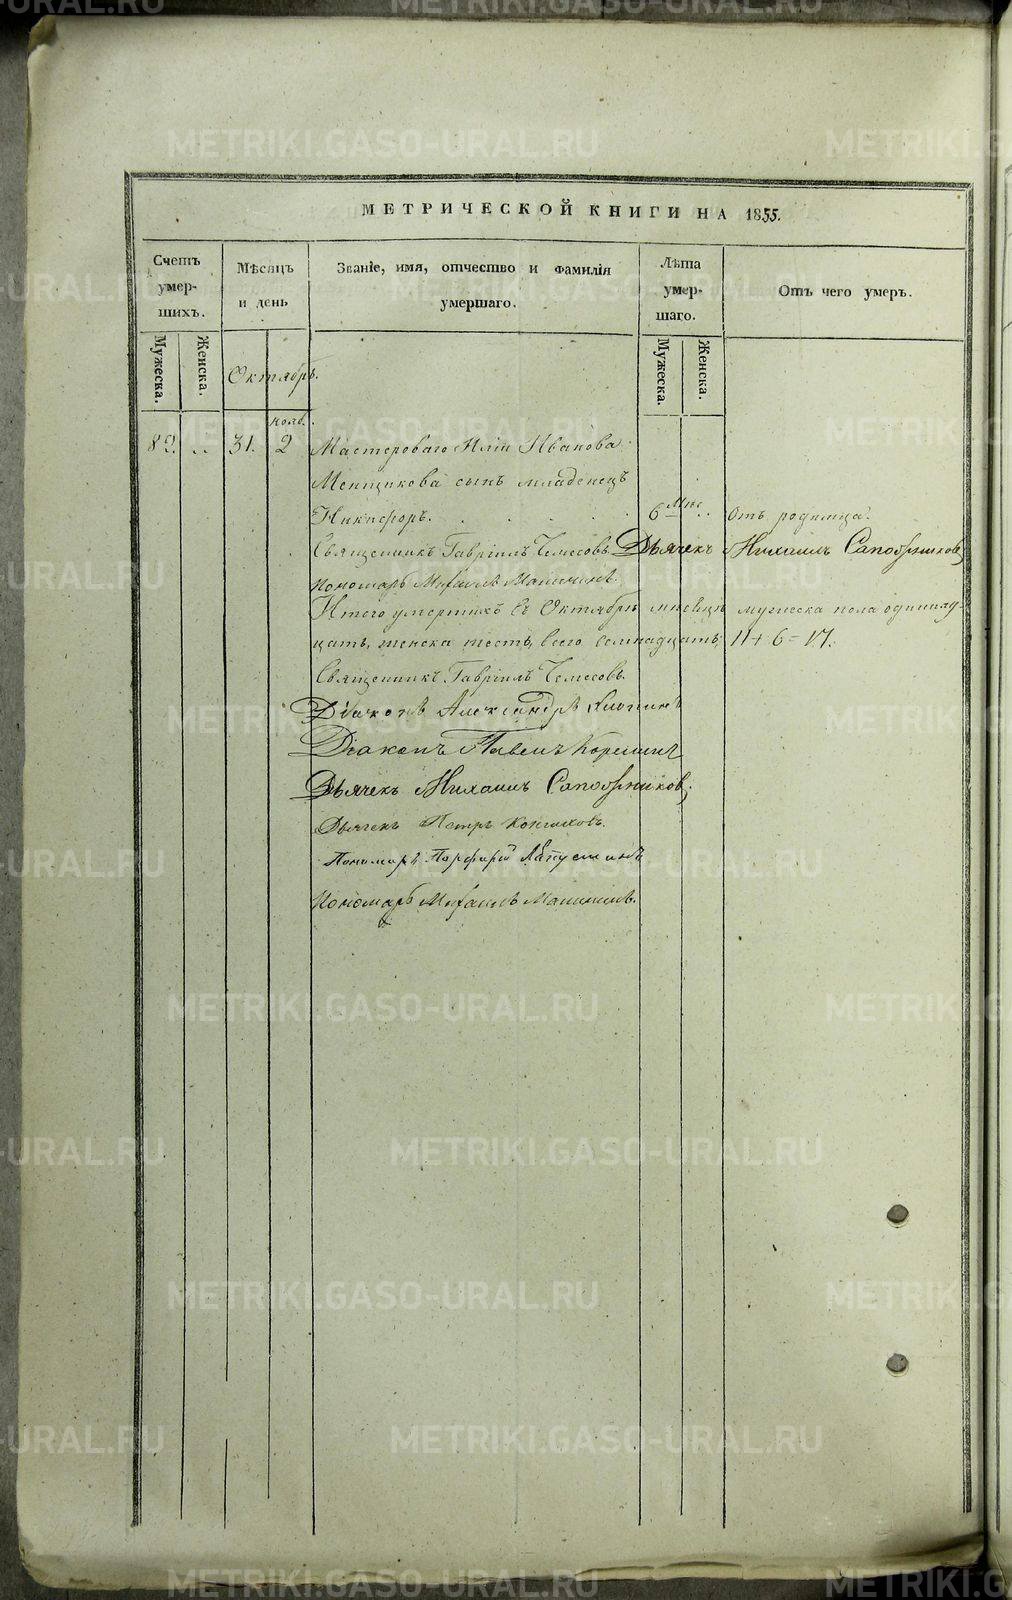 МЕТРИЧЕСКОЙ КНИГИ НА 1855.
Счетъ умер-шихъ.
Мѣсяцъ и день
Званіе, имя, отчество и фамилія умершаго.
Лѣта умер-шаго.
Отъ чего умеръ.
Мужеска. Женска.
Мужеска. Женска.
Октябрь.
нояб.
82. 31. 2 Мастероваго Иліи Иванова
Менщикова сынъ младенецъ
Никифоръ. 6 Мѣс. Отъ родимца.
Священникъ Гавріилъ Чемесовъ Дьячекъ Михаилъ Сапожников,
Пономарь Михаилъ
Итого умершихъ въ Октябрѣ мѣсяцѣ мужеска пола одиннад-
цать, женска шесть, всего семнадцать, 11 + 6 = 17.
Священникъ Гавріилъ Чемесовъ.
Діаконъ Александръ
Діаконъ Павелъ
Дьячекъ Михаилъ Сапожников,
Дьячекъ Петръ
Пономарь Порфирій
Пономарь Михаилъ
METRIKI.GASO-URAL.RU